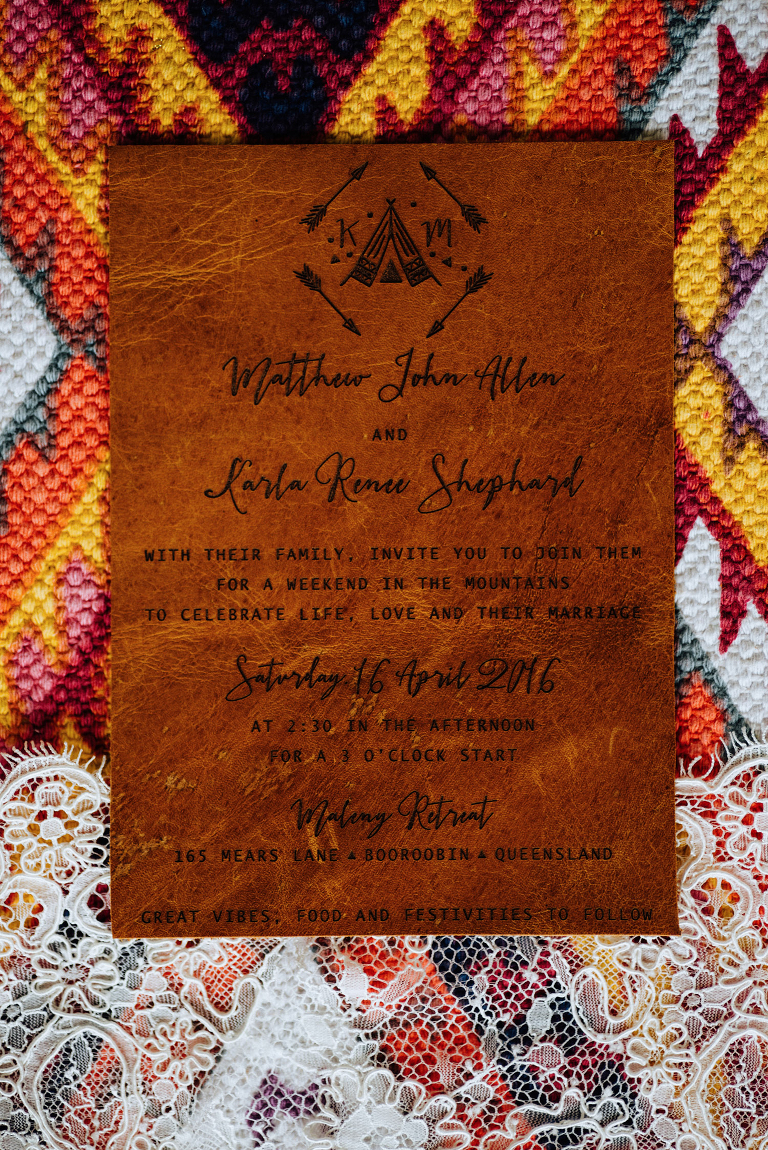 K M
Matthew John Allen
AND
Karla Renee Shephard
WITH THEIR FAMILY, INVITE YOU TO JOIN THEM
FOR A WEEKEND IN THE MOUNTAINS
TO CELEBRATE LIFE, LOVE AND THEIR MARRIAGE
Saturday 16 April 2016
AT 2:30 IN THE AFTERNOON
FOR A 3 O'CLOCK START
Maleny Retreat
165 MEARS LANE ▲ BOOROOBIN ▲ QUEENSLAND
GREAT VIBES, FOOD AND FESTIVITIES TO FOLLOW